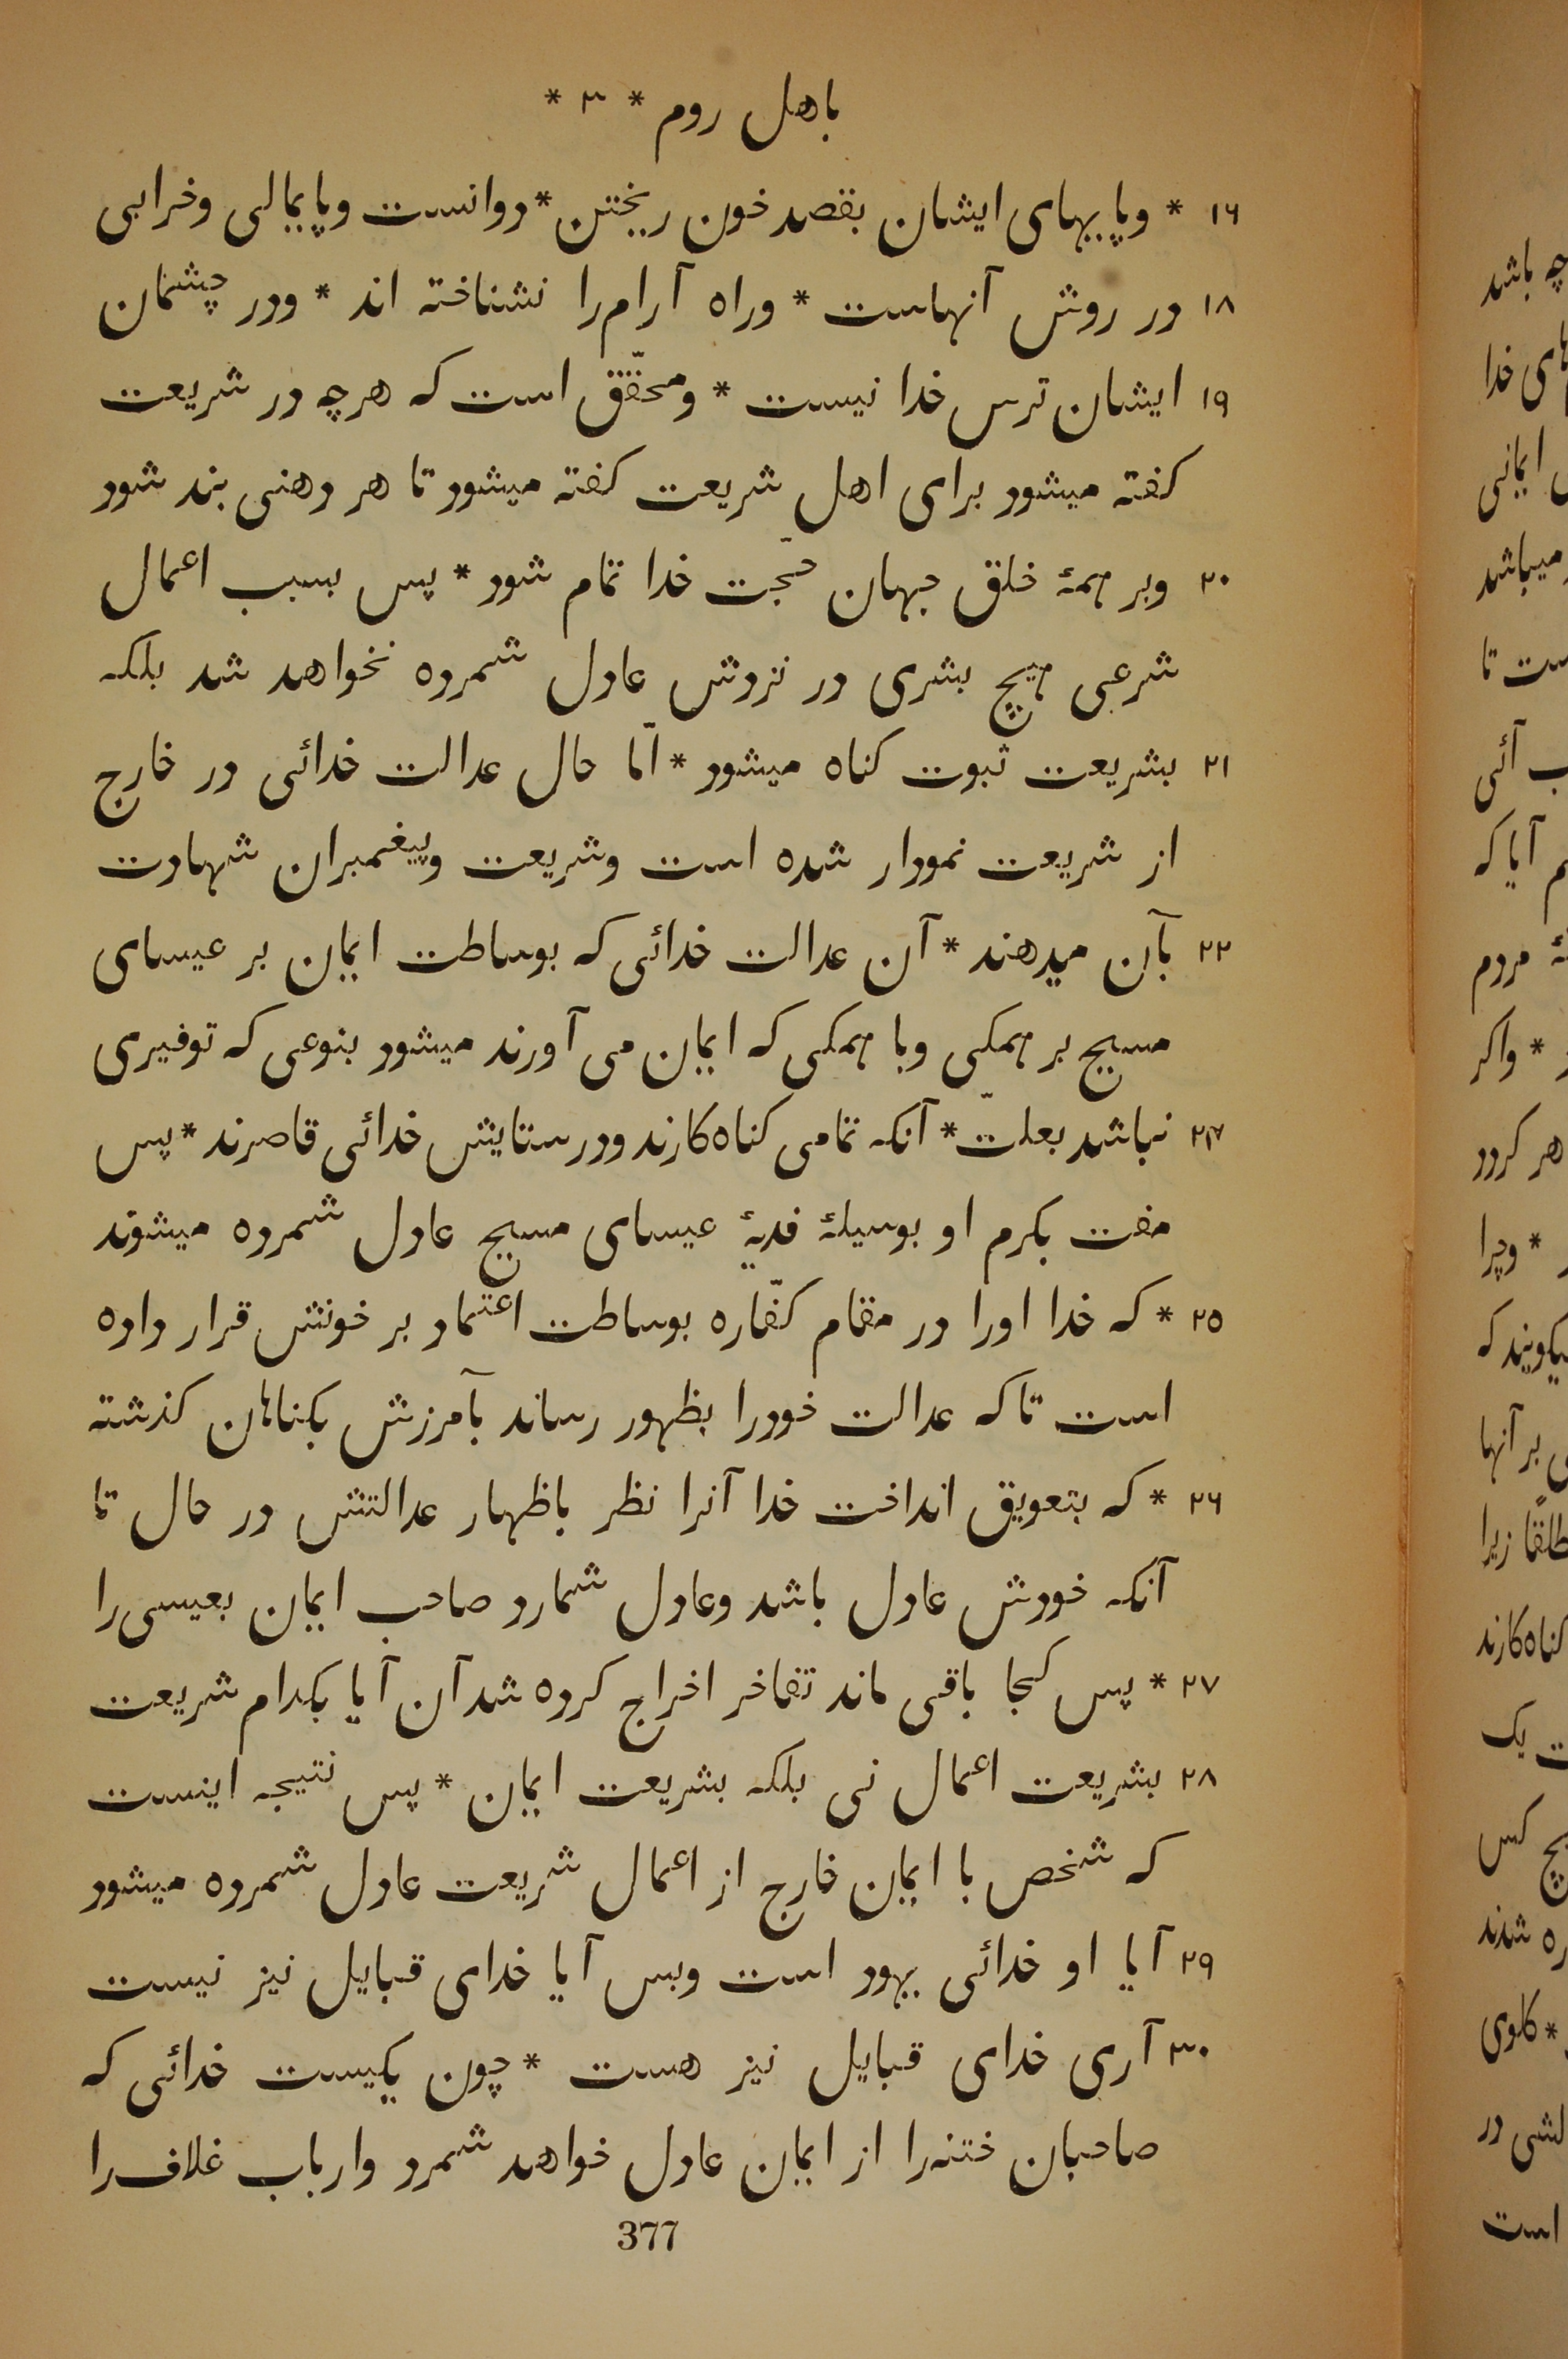 باهل روم * ۳ *
۱۶ * وپایهای ایشان بقصد خون ریختن * دوانست وپایمالی وخرابی
۱۸ در روش آنهاست * وراه آرام را نشناخته اند * ودر چشمان
۱۹ ایشان ترس خدا نیست * ومحقّق است که هرچه در شریعت
کفته میشود برای اهل شریعت کفته میشود تا هر دهنی بند شود
۲۰ وبر همهٔ خلق جهان حجّت خدا تمام شود * پس بسبب اعمال
شرعی هیچ بشری در نزدش عادل شمرده نخواهد شد بلکه
۲۱ بشریعت ثبوت کناه میشود * امّا حال عدالت خدائی در خارج
از شریعت نمودار شده است وشریعت وپیغمبران شهادت
۲۲ بآن میدهند * آن عدالت خدائی که بوساطت ایمان بر عیسای
مسیح بر همکی وبا همکی که ایمان می آورند میشود بنوعی که توفیری
۲۳ نباشد بعلّت * آنکه تمامی کناه کارند ودر ستایش خدائی قاصرند * پس
مفت بکرم او بوسیلهٔ فدیهٔ عیسای مسیح عادل شمرده میشوند
۲۵ * که خدا اورا در مقام کفّاره بوساطت اعتماد بر خونش قرار داده
است تا که عدالت خودرا بظهور رساند بآمرزش بکناهان کذشته
۲۶ * که بتعویق انداخت خدا آنرا نظر باظهار عدالتش در حال تا
آنکه خودش عادل باشد وعادل شمارد صاحب ایمان بعیسی را
۲۷ * پس کجا باقی ماند تفاخر اخراج کرده شد آن آیا بکدام شریعت
۲۸ بشریعت اعمال نی بلکه بشریعت ایمان * پس نتیجه اینست
که شخص با ایمان خارج از اعمال شریعت عادل شمرده میشود
۲۹ آیا او خدائی یهود است وبس آیا خدای قبایل نیز نیست
۳۰ آری خدای قبایل نیز هست * چون یکیست خدائی که
صاحبان ختنه را از ایمان عادل خواهد شمرد وارباب غلاف را
377